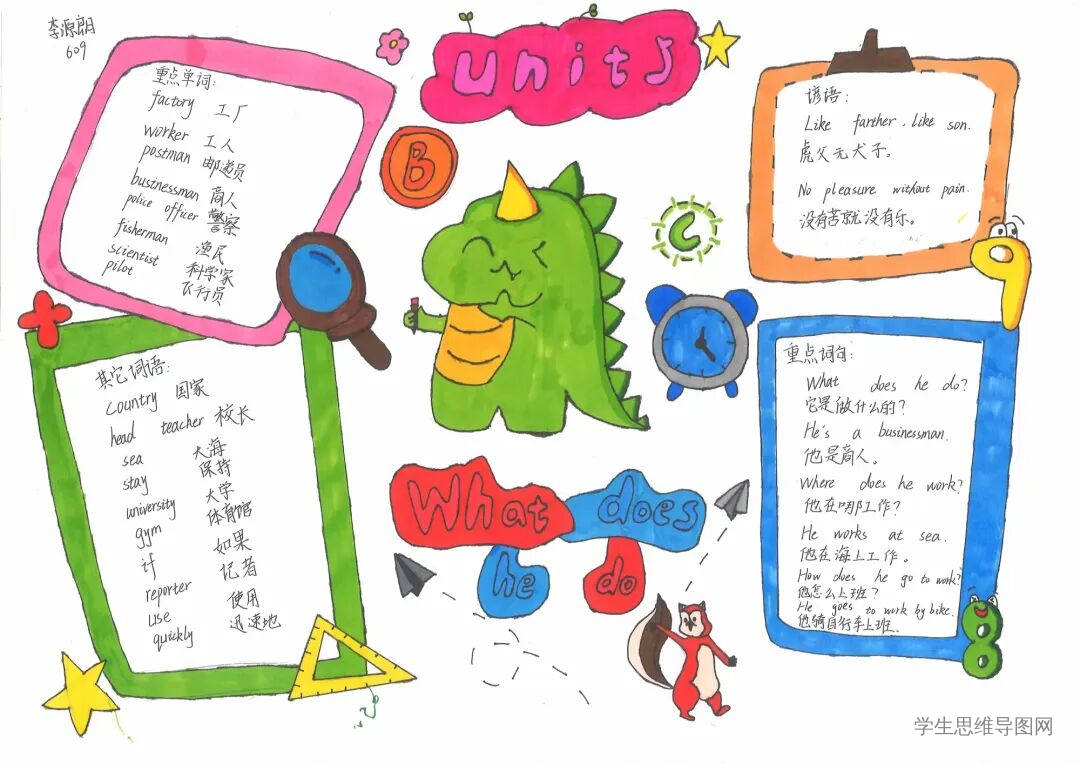 李源朗
609
unit5
重点单词:
factory 工厂
worker 工人
postman 邮递员
bustnessman 商人
police officer 警察
fisherman 渔民
scientist 科学家
pilot 飞行员
B
C
谚语:
Like farther, like son.
虎父无犬子。
No pleasure without pain.
没有苦就没有乐。
其它词语:
country 国家
head teacher 校长
sea 大海
stay 保持
university 大学
gym 体育馆
if 如果
reporter 记者
use 使用
quickly 迅速地
What does
he do
重点词句:
What does he do?
它是做什么的?
He's a businessman.
他是商人。
Where does he work?
他在哪工作?
He works at sea.
他在海上工作。
How does he go to work?
他怎么上班?
He goes to work by bike.
他骑自行车上班.
学生思维导图网